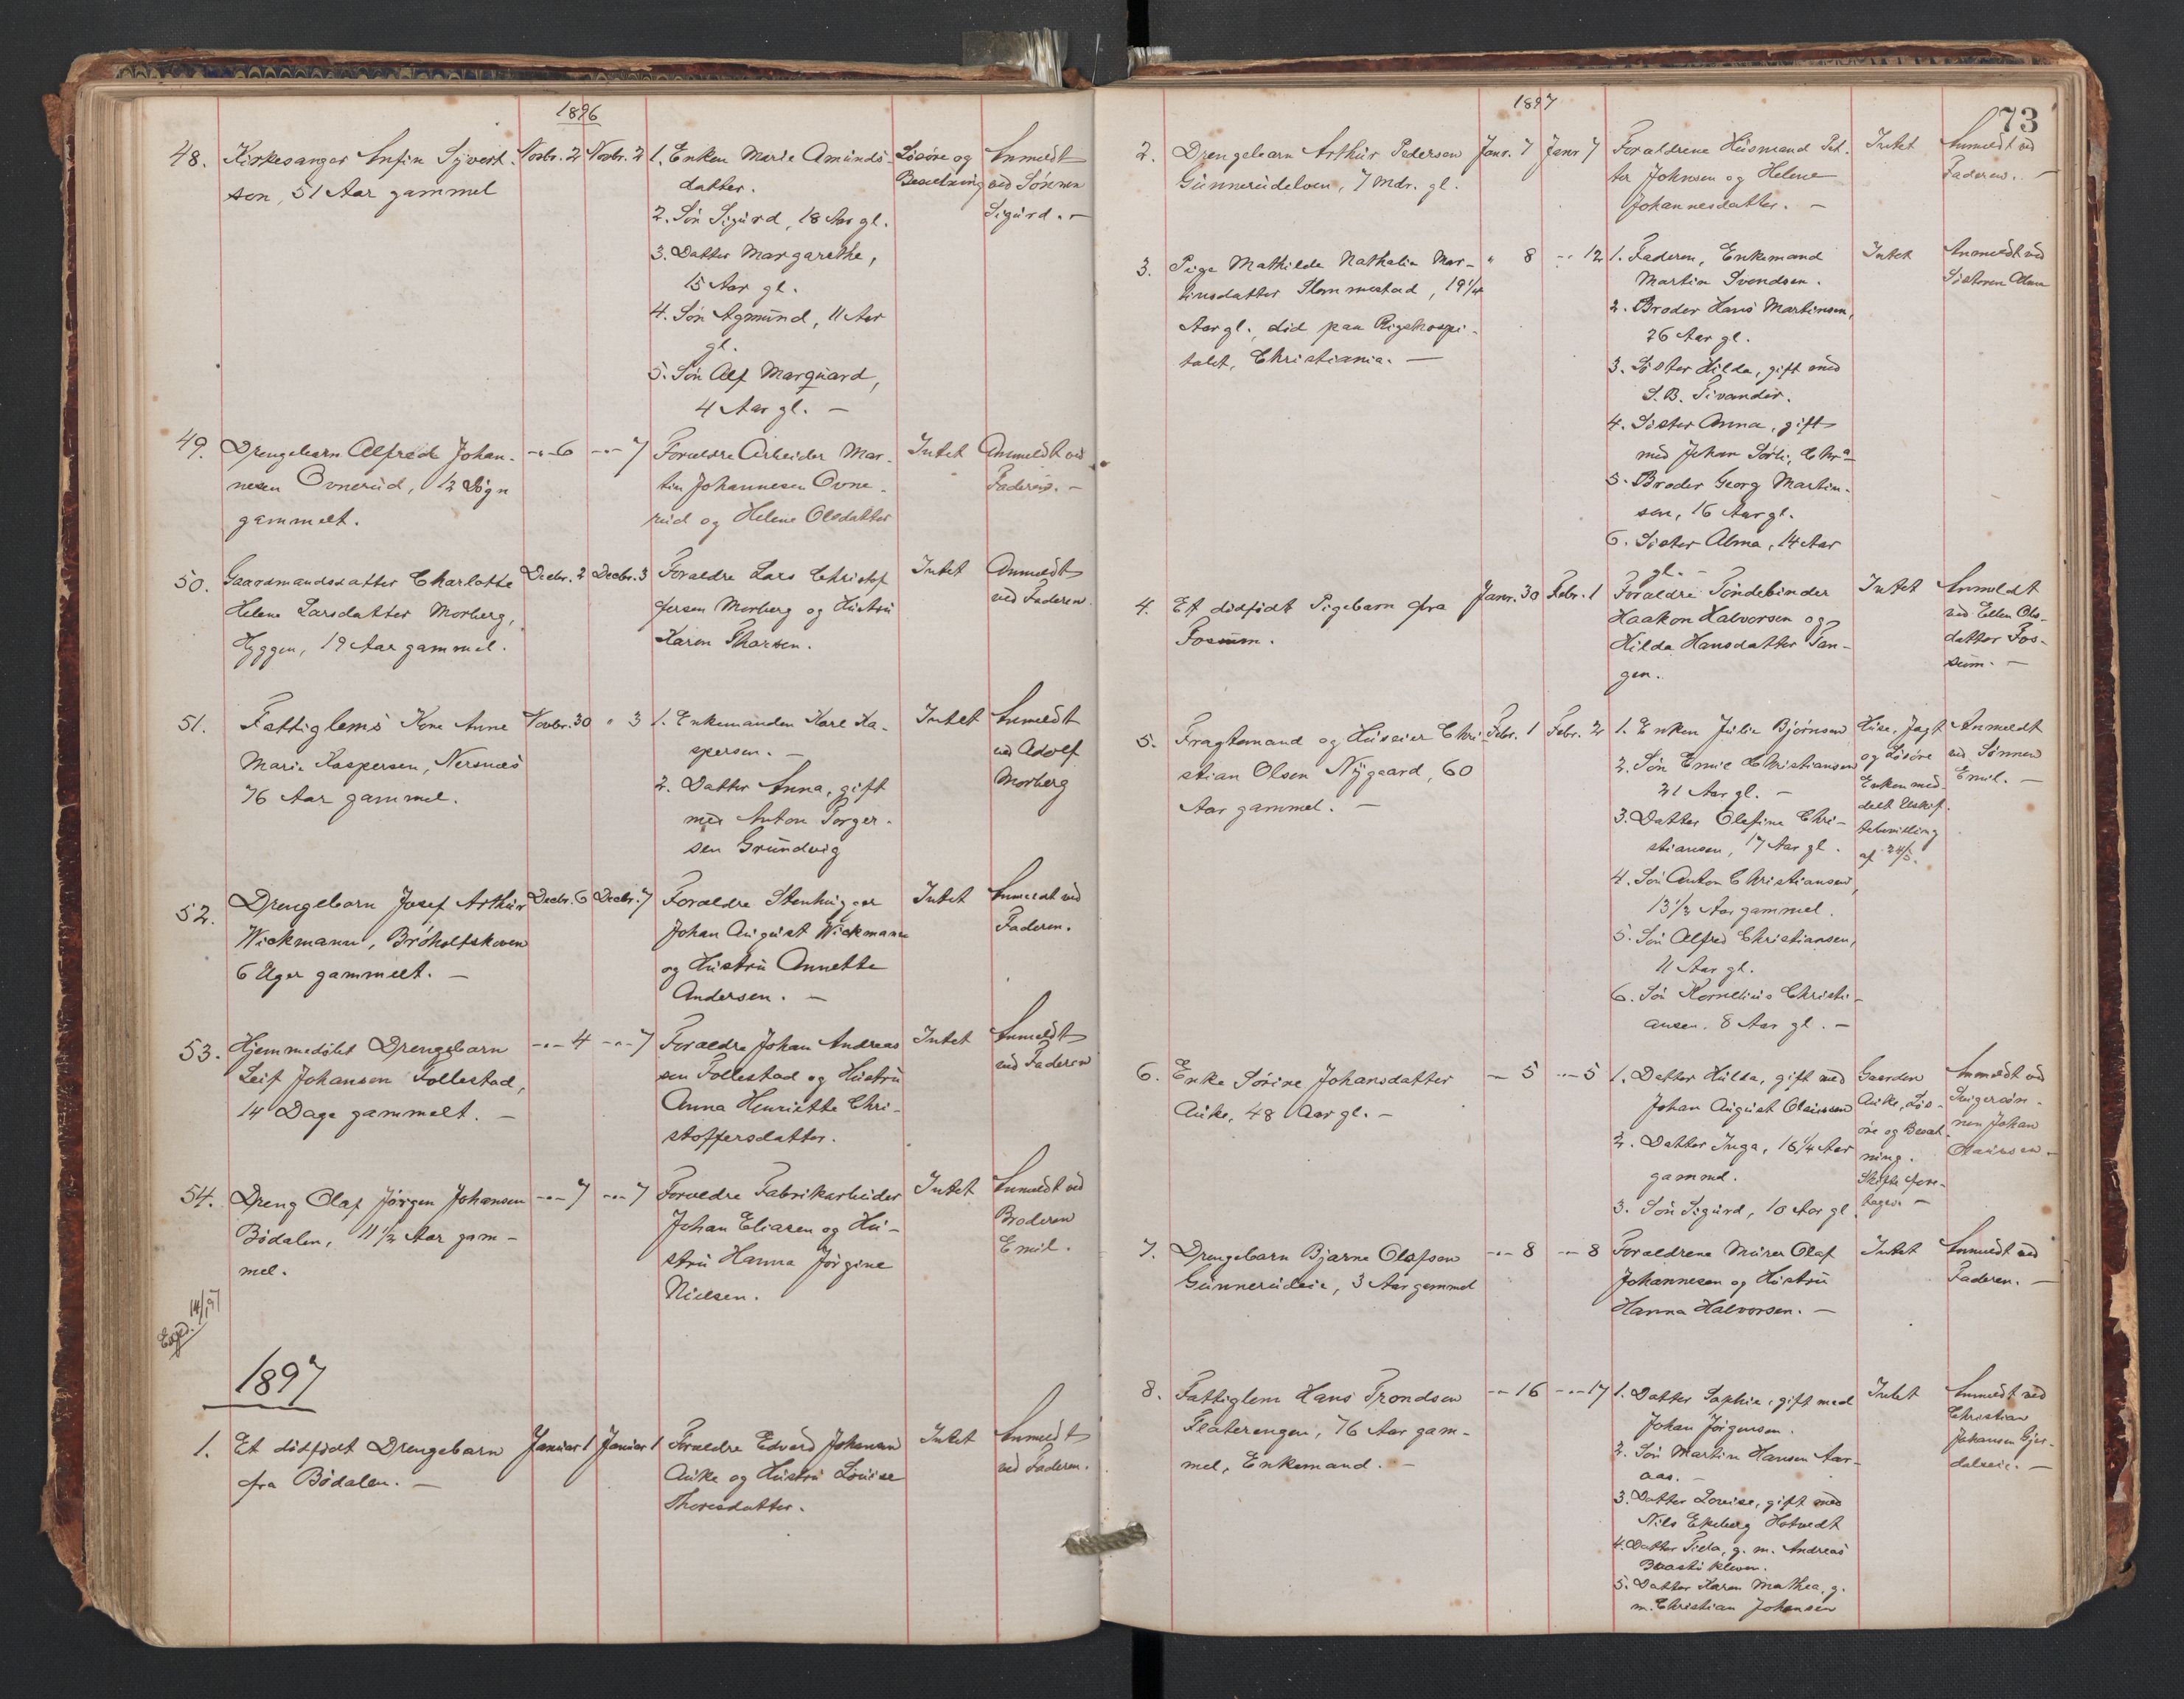 1896
48. Kirkesanger Anfin Syvert-
sen, 51 Aar gammel
Novbr. 2 Novbr. 2
1. Enken Marie Amunds-
datter.
2. Søn Sigurd, 18 Aar gl.
3. Datter Margarethe,
15 Aar gl.
4. Søn Agmund, 11 Aar
gl.
5. Søn Alf Marquard,
4 Aar gl. —
Løsøre og
Besætning
Anmeldt
ved Sønnen
Sigurd. —
49. Drengebarn Alfred Johan-
nesen Ovnerud, 12 Døgn
gammelt.
-"- 6 -"- 7
Forældre Arbeider Mar-
tin Johannesen Ovne-
rud og Helene Olsdatter
Intet
Anmeldt ved
Faderen. —
50. Gaardmandsdatter Charlotte
Helene Larsdatter Morberg,
Hyggen, 19 Aar gammel.
Decbr. 2 Decbr. 3
Forældre Lars Christof
fersen Morberg og Hustru
Karen Thorsen.
Intet
Anmeldt
ved Faderen
51. Fattiglems Kone Anne
Marie Kaspersen, Nersnæs
76 Aar gammel.
Novbr. 30 " 3
1. Enkemanden Karl Ka-
spersen. —
2. Datter Anna, gift
med Anton Torger-
sen Grundvig
Intet
Anmeldt
ved Adolf
Morberg
52. Drengebarn Josef Arthur
Wickmann, Brøholtskoven
6 Uger gammelt. —
Decbr. 6 Decbr. 7
Forældre Stenhugger
Johan August Wickmann
og Hustru Annette
Andersen. —
Intet
Anmeldt ved
Faderen.
53. Hjemmedøbt Drengebarn
Leif Johansen Follestad,
14 Dage gammelt. —
-"- 4 -"- 7
Forældre Johan Andreas
sen Follestad og Hustru
Anna Henriette Chri-
stoffersdatter.
Intet
Anmeldt
ved Faderen
54. Dreng Olaf Jørgen Johansen
Bødalen, 11 1/2 Aar gam-
mel.
-"- 7 -"- 7
Forældre Fabrikarbeider
Johan Eliasen og Hu-
stru Hanna Jørgine
Nielsen.
Intet
Anmeldt ved
Broderen
Emil.
1897
1. Et dødfødt Drengebarn
fra Bødalen. —
Januar 1 Januar 1
Forældre Edvard Johansen
Auke og Hustru Louise
Thoresdatter.
Intet
Anmeldt
ved Faderen.
1897
73
2. Drengebarn Arthur Pedersen
Gunnerudeloen, 7 Mdr. gl.
Janr. 7 Janr 7
Forældrene Husmand Pet-
ter Johnsen og Helene
Johannesdatter. —
Intet
Anmeldt ved
Faderen. —
3. Pige Mathilde Nathalia Mar-
tinsdatter Slemmestad, 19 1/4
Aar gl., død paa Rigshospi-
talet, Christiania. —
" 8 -"- 12
1. Faderen, Enkemand
Martin Svendsen.
2. Broder Hans Martinsen,
26 Aar gl.
3. Søster Hilda, gift med
S. B. Sivander.
4. Søster Anna, gift
med Johan Sørli, Chra
5. Broder Georg Martin-
sen, 16 Aar gl.
6. Søster Alma, 14 Aar
gl. —
Intet
Anmeldt ved
Søsteren Alma
4. Et dødfødt Pigebarn fra
Fossum.
Janr. 30 Febr. 1
Forældre Tøndebinder
Haakon Halvorsen og
Hilda Hansdatter Tan-
gen.
Intet
Anmeldt
ved Ellen Ols-
datter Fos-
sum. —
5. Fragtemand og Huseier Chri-
stian Olsen Nygaard, 60
Aar gammel. —
Febr. 1 Febr. 2
1. Enken Julie Bjørnsen
2. Søn Emil Christiansen
21 Aar gl. —
3. Datter Olefine Chri-
stiansen, 17 Aar gl.
4. Søn Anton Christiansen,
13 1/2 Aar gammel.
5. Søn Alfred Christiansen,
11 Aar gl.
6. Søn Kornelius Christi-
ansen. 8 Aar gl. —
Huse, Jagt
og Løsøre
Enken med-
delt Uskif-
tebevilling
af 24/5.
Anmeldt
ved Sønnen
Emil. —
6. Enke Sørine Johansdatter
Auke, 48 Aar gl. —
— 5 -"- 5
1. Datter Hulda, gift med
Johan August Olaussen
2. Datter Inga, 16 1/4 Aar
gammel.
3. Søn Sigurd, 10 Aar gl.
Gaarden
Auke, Løs-
øre og Besæt-
ning.
Skifte fore-
tages. —
Anmeldt ved
Svigersøn-
nen Johan
Olaussen. —
7. Drengebarn Bjarne Olafsen
Gunnerudeie, 3 Aar gammel
-"- 8 -"- 8
Forældrene Murer Olaf
Johannesen og Hustru
Hanna Halvorsen. —
Intet
Anmeldt ved
Faderen. —
8. Fattiglem Hans Trondsen
Flaterengen, 76 Aar gam-
mel, Enkemand. —
-"- 16 -"- 17
1. Datter Sophie, gift med
Johan Jørgensen.
2. Søn Martin Hansen Aar-
aas. —
3. Datter Lovise, gift med
Nils Ekeberg Hotvedt
4. Datter Sida, g. m. Andreas
Baastökleven.
5. Datter Karen Mathea, g.
m. Christian Johansen
Intet
Anmeldt ved
Christian
Johansen Gjer-
dalseie. —